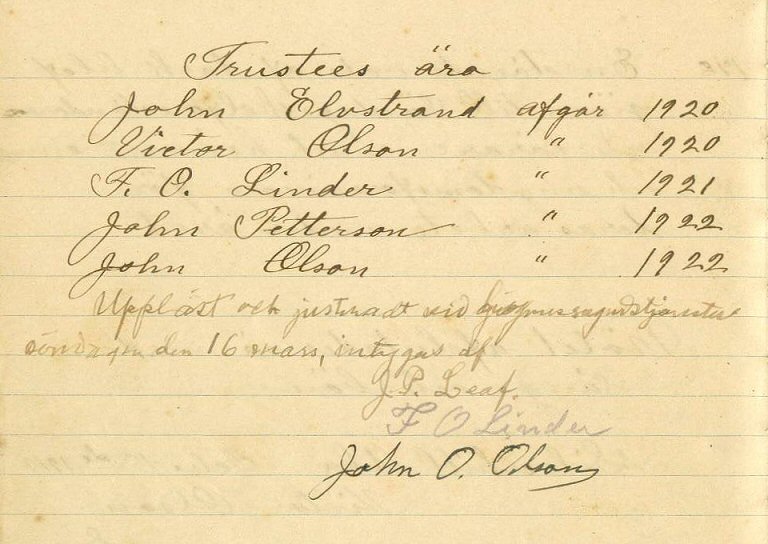 Trustees äro
John Elvstrand afgår 1920
Victor Olson " 1920
F. O. Linder " 1921
John Petterson " 1922
John Olson " 1922
Uppläst och justeradt vid
söndagen den 16 mars, intygas af
J. P. Leaf.
F O Linder
John O. Olson